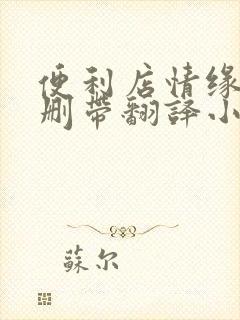 便利店情缘
删带翻译小
蘇尔